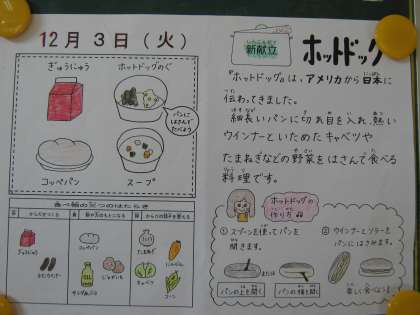 12月 3日（火）
ぎゅうにゅう
ホットドッグのぐ
パンに
はさんで
たべよう
コッペパン
スープ
食べ物の三つのはたらき
赤 からだをつくる
黄
緑 からだの調子を整える
ぎゅうにゅう
ウインナー
コッペパン
じゃがいも
サラダあぶら
たまねぎ
キャベツ
にんじん
コーン
新献立
ホットドッグ
『ホットドッグ』は、アメリカから日本に
伝わってきました。
細長いパンに切れ目を入れ、熱い
ウインナーといためたキャベツや
たまねぎなどの野菜をはさんで食べる
料理です。
ホットドッグの
作り方
① スプーンを使ってパンを
開きます。
または
パンの上を開く
パンの横を開く
② ウインナーとソテーを
パンにはさみます。
楽しく食べましょう